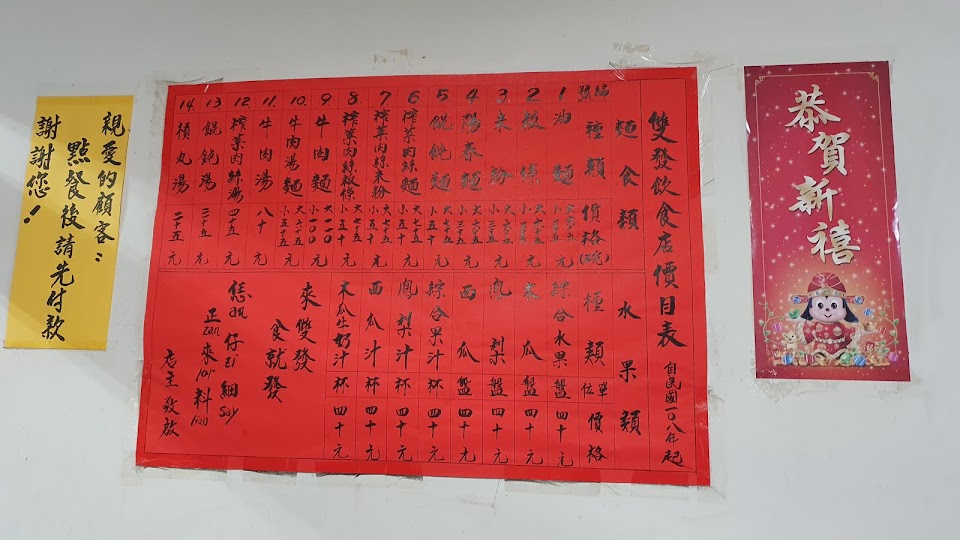 恭賀新禧
雙發飲食店價目表 自民國一〇八年起
麵食類
編號 種類 價格
1 油麵 元
2 粄條 元
3 米粉 元
4 陽春麵 元
5 餛飩麵 元
6 榨菜肉絲麵 大七十五 小五十 元
7 榨菜肉絲米粉 大七十五 小五十 元
8 榨菜肉絲粄條 大七十五 小五十 元
9 牛肉麵 大一一〇 小一〇〇 元
10 牛肉湯麵 大六十五 小五十五 元
11 牛肉湯 八十 元
12 榨菜肉絲湯 四十五 元
13 餛飩湯 三十五 元
14 摃丸湯 二十五 元
水果類
種類 單位 價格
綜合水果 盤 四十元
木瓜 盤 四十元
鳳梨 盤 四十元
西瓜 盤 四十元
綜合果汁 杯 四十元
鳳梨汁 杯 四十元
西瓜汁 杯 四十元
木瓜牛奶汁 杯 四十元
來雙發
食就發
恁an 仔zi 細say
正zan 來loi 料liau
店主 敬啟
親愛的顧客：
點餐後請先付款
謝謝您！